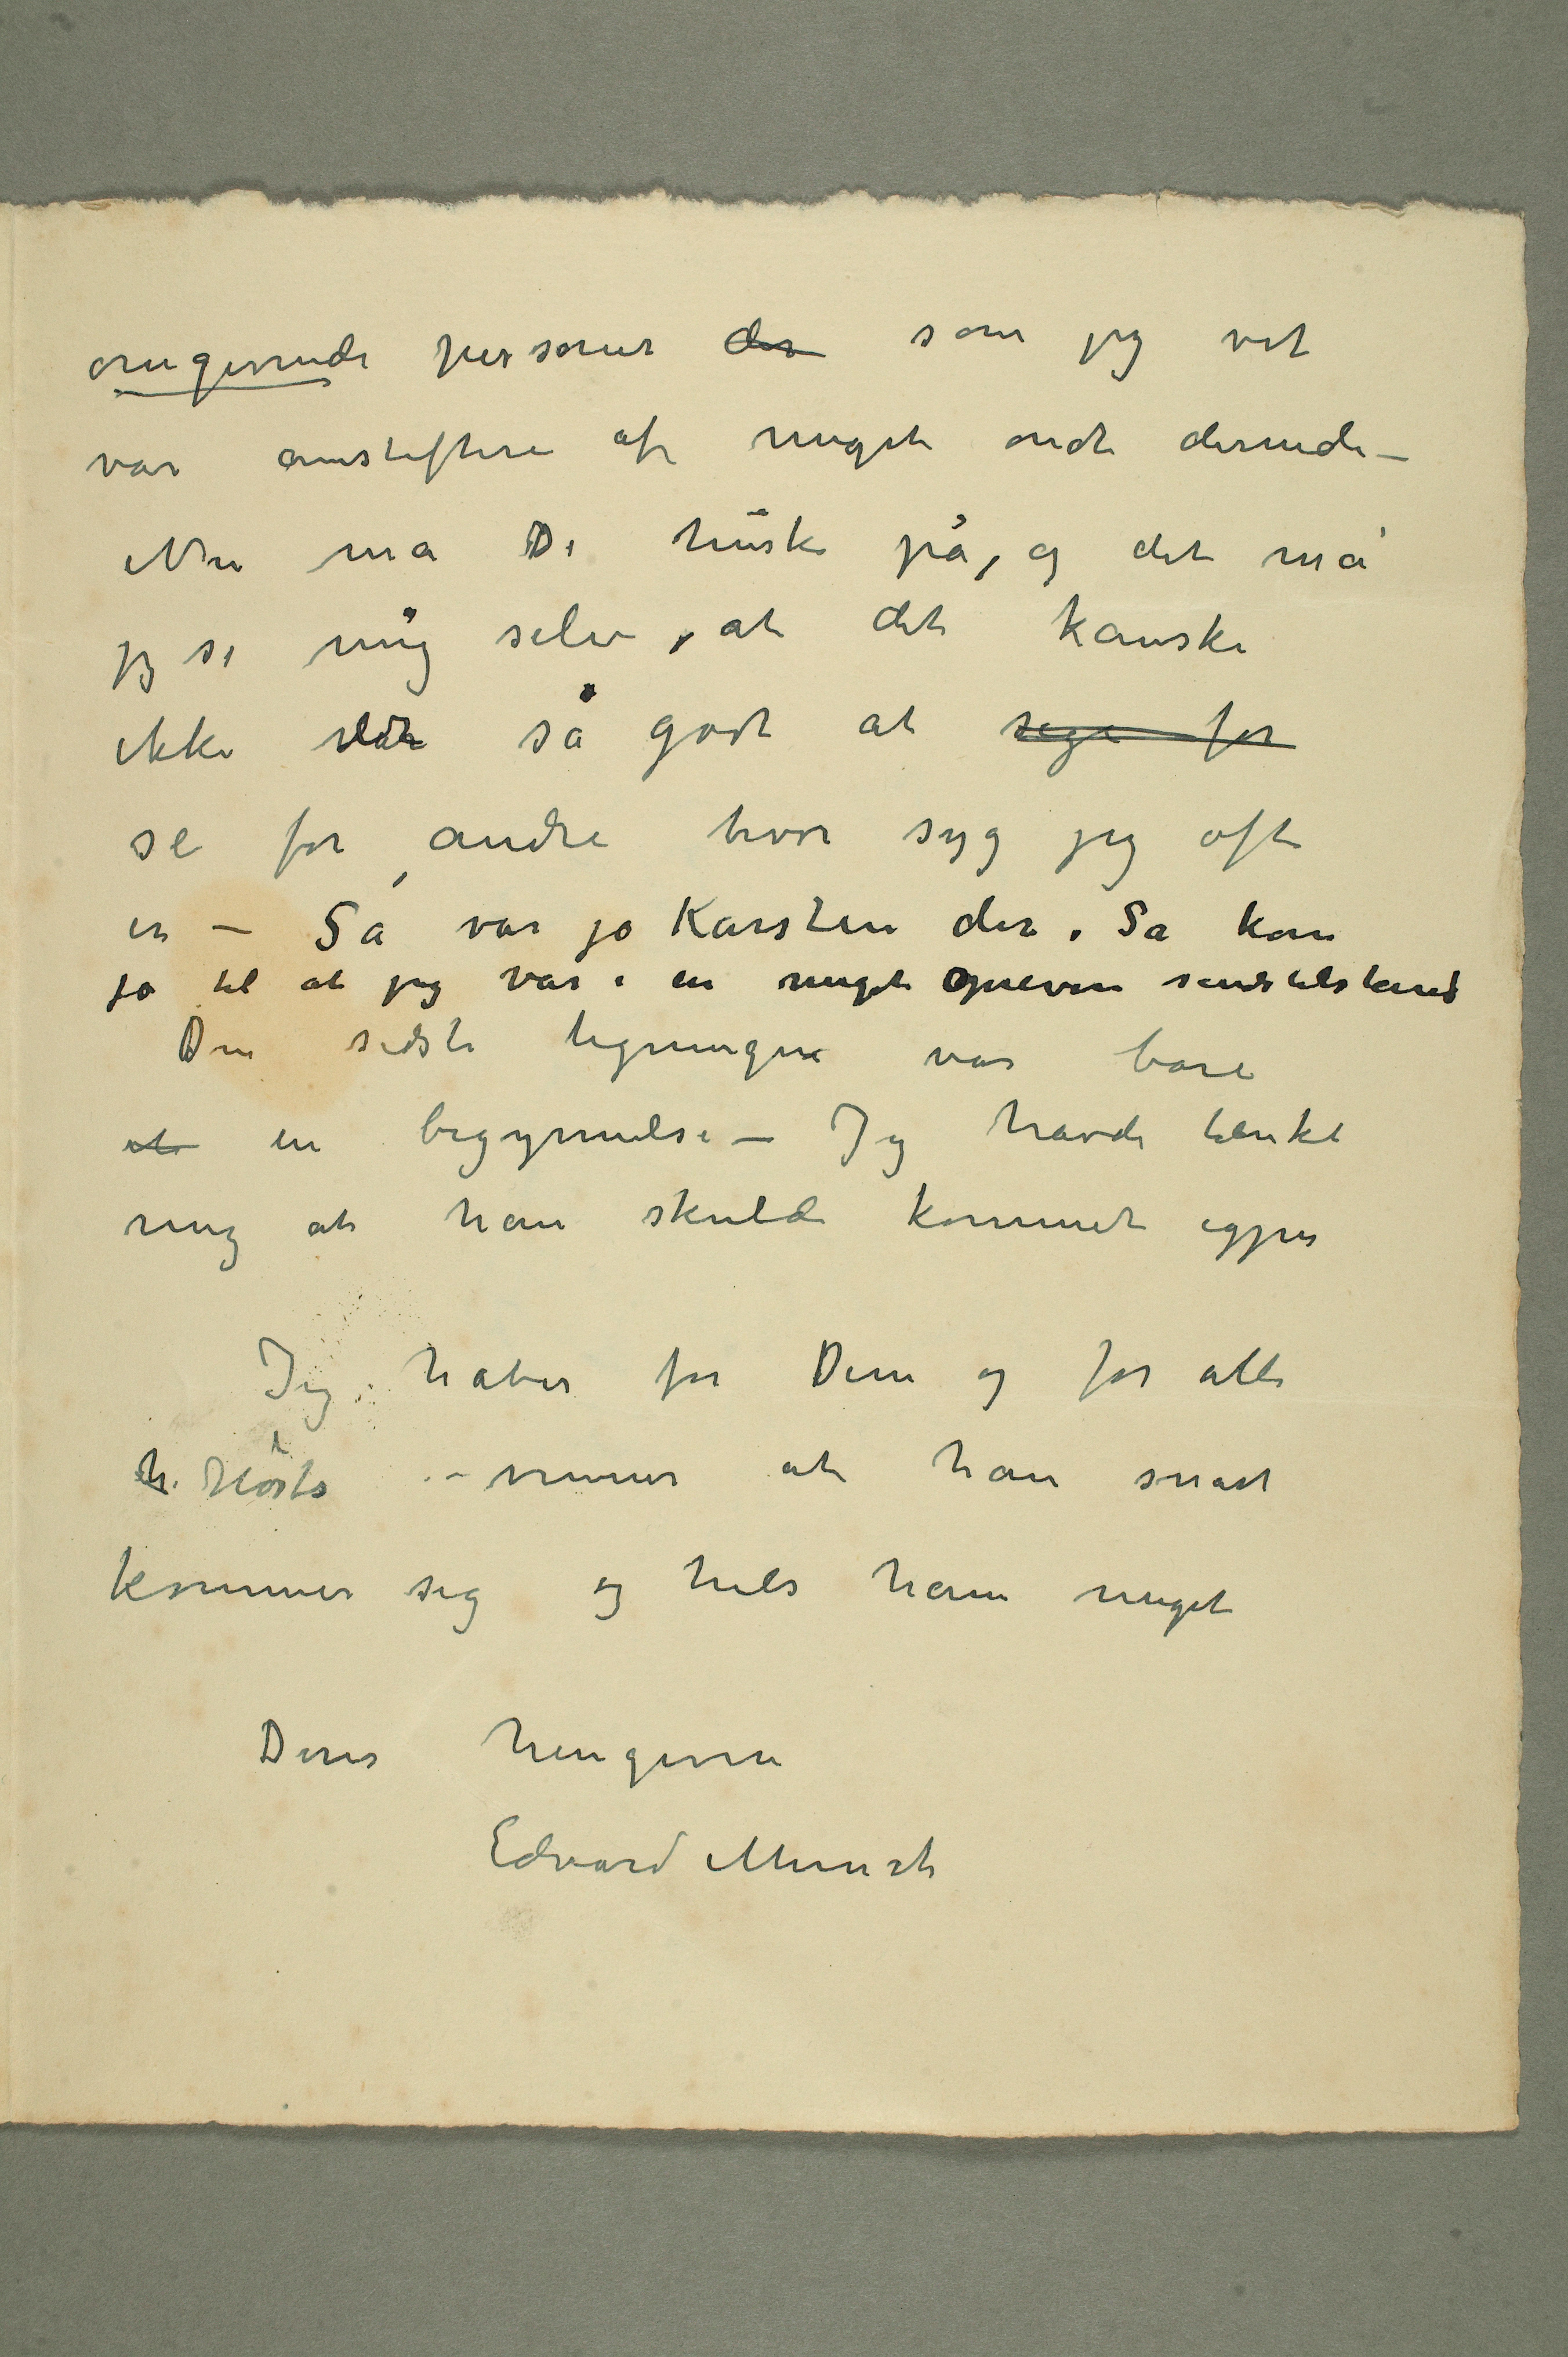 omgivende personer der som jeg vet
var anstiftere af meget ondt dernede –
Nu må De huske på, og det må
jeg si mig selv, at det kanske
ikke så godt at sige for
se for andre hvor syg jeg ofte
er – Så var jo Karsten der. Så kom
jo til at jeg var i en meget opreven sindstilstand
Den sidste tegningen var bare
et en begynnelse – Jeg havde tænkt
mig at han skulde kommet igjen
Jeg håber for Dem og for alle
h. Hosts venner at han snart
kommer sig og hils ham meget
Deres hengivne
Edvard Munch